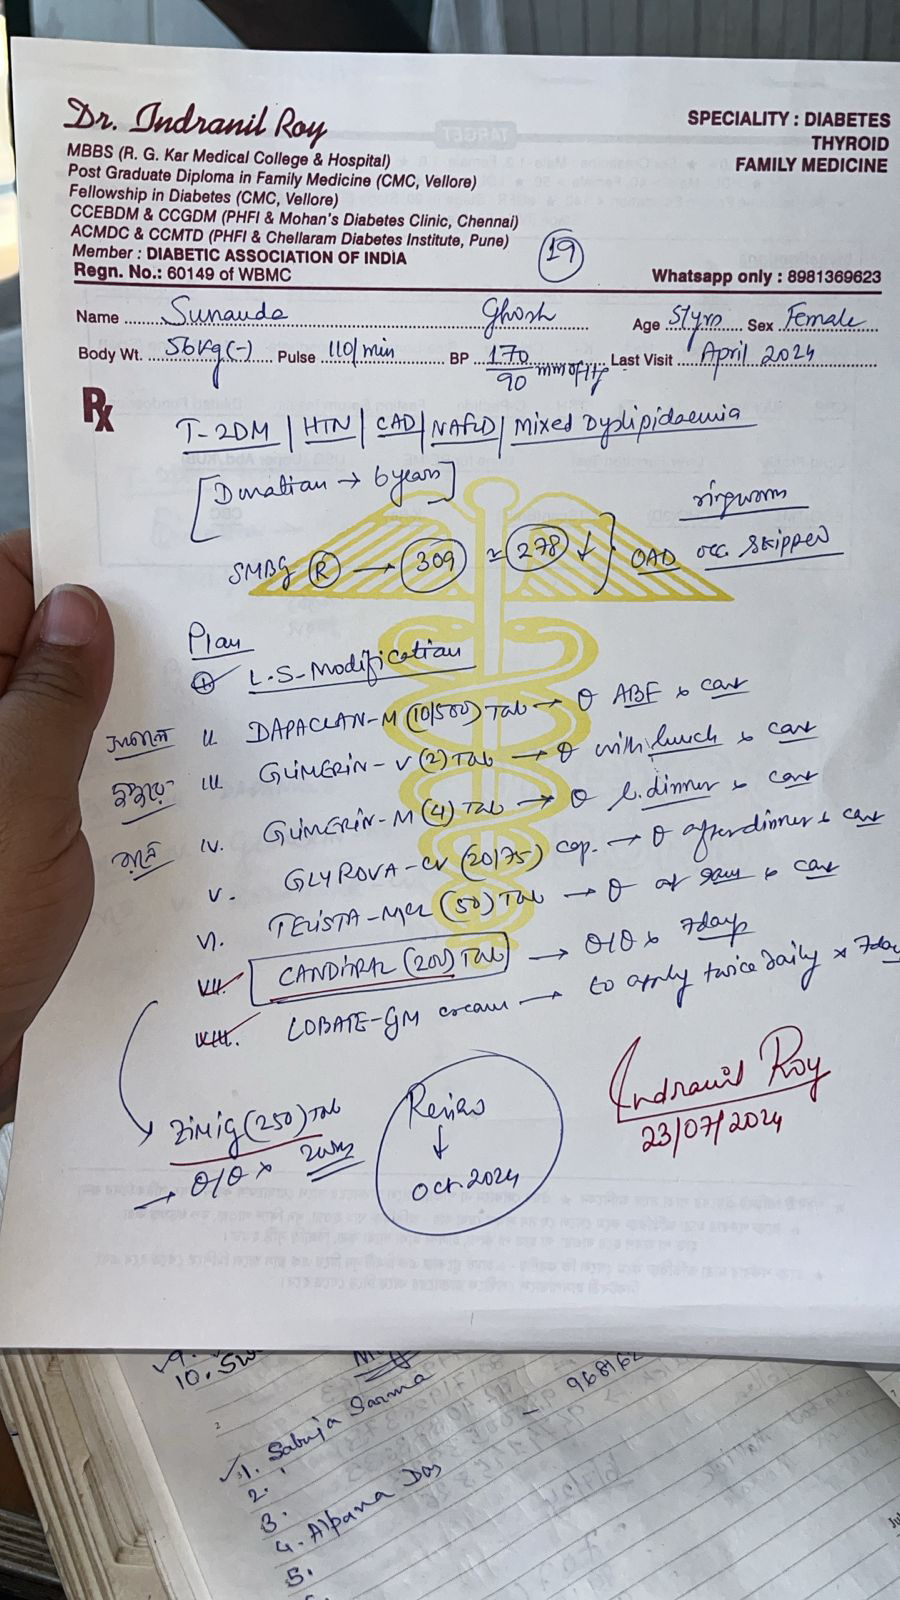 Dr. Indranil Roy
MBBS (R. G. Kar Medical College & Hospital)
Post Graduate Diploma in Family Medicine (CMC, Vellore)
Fellowship in Diabetes (CMC, Vellore)
CCEBDM & CCGDM (PHFI & Mohan's Diabetes Clinic, Chennai)
ACMDC & CCMTD (PHFI & Chellaram Diabetes Institute, Pune)
Member : DIABETIC ASSOCIATION OF INDIA
Regn. No.: 60149 of WBMC
SPECIALITY : DIABETES
THYROID
FAMILY MEDICINE
19
Whatsapp only : 8981369623
Name Sunanda Ghosh Age 51yrs Sex Female
Body Wt. 56kg(-) Pulse 110/min BP 170/90 mm of Hg Last Visit April 2024
Rx
T-2DM | HTN | CAD | NAFLD | Mixed Dyslipidaemia
[Duration → 6 years]
ringworm
SMBG (R) → 309 278 ↓ } OAD occ. skipped
Plan
L.S. Modification
II. (10/500) Tab → ABF cont
দুপুরে III. GLIMERIN-V (2) Tab → with lunch cont
রাত্রে IV. GLIMERIN-M (4) Tab → dinner cont
V. GLYROVA-CV (20/75) cap. → after dinner cont
VI. TELISTA-MCL (50) Tab → at cont
VII. (200) Tab → x 7days
VIII. LOBATE-GM cream → to apply twice daily x 7days
ZIMIG (250) Tab
→ x
Review
↓
Oct. 2024
Indranil Roy
23/07/2024
9.
10.
1. Sabuja Sarma
2.
3.
4. Alpana Das
5.